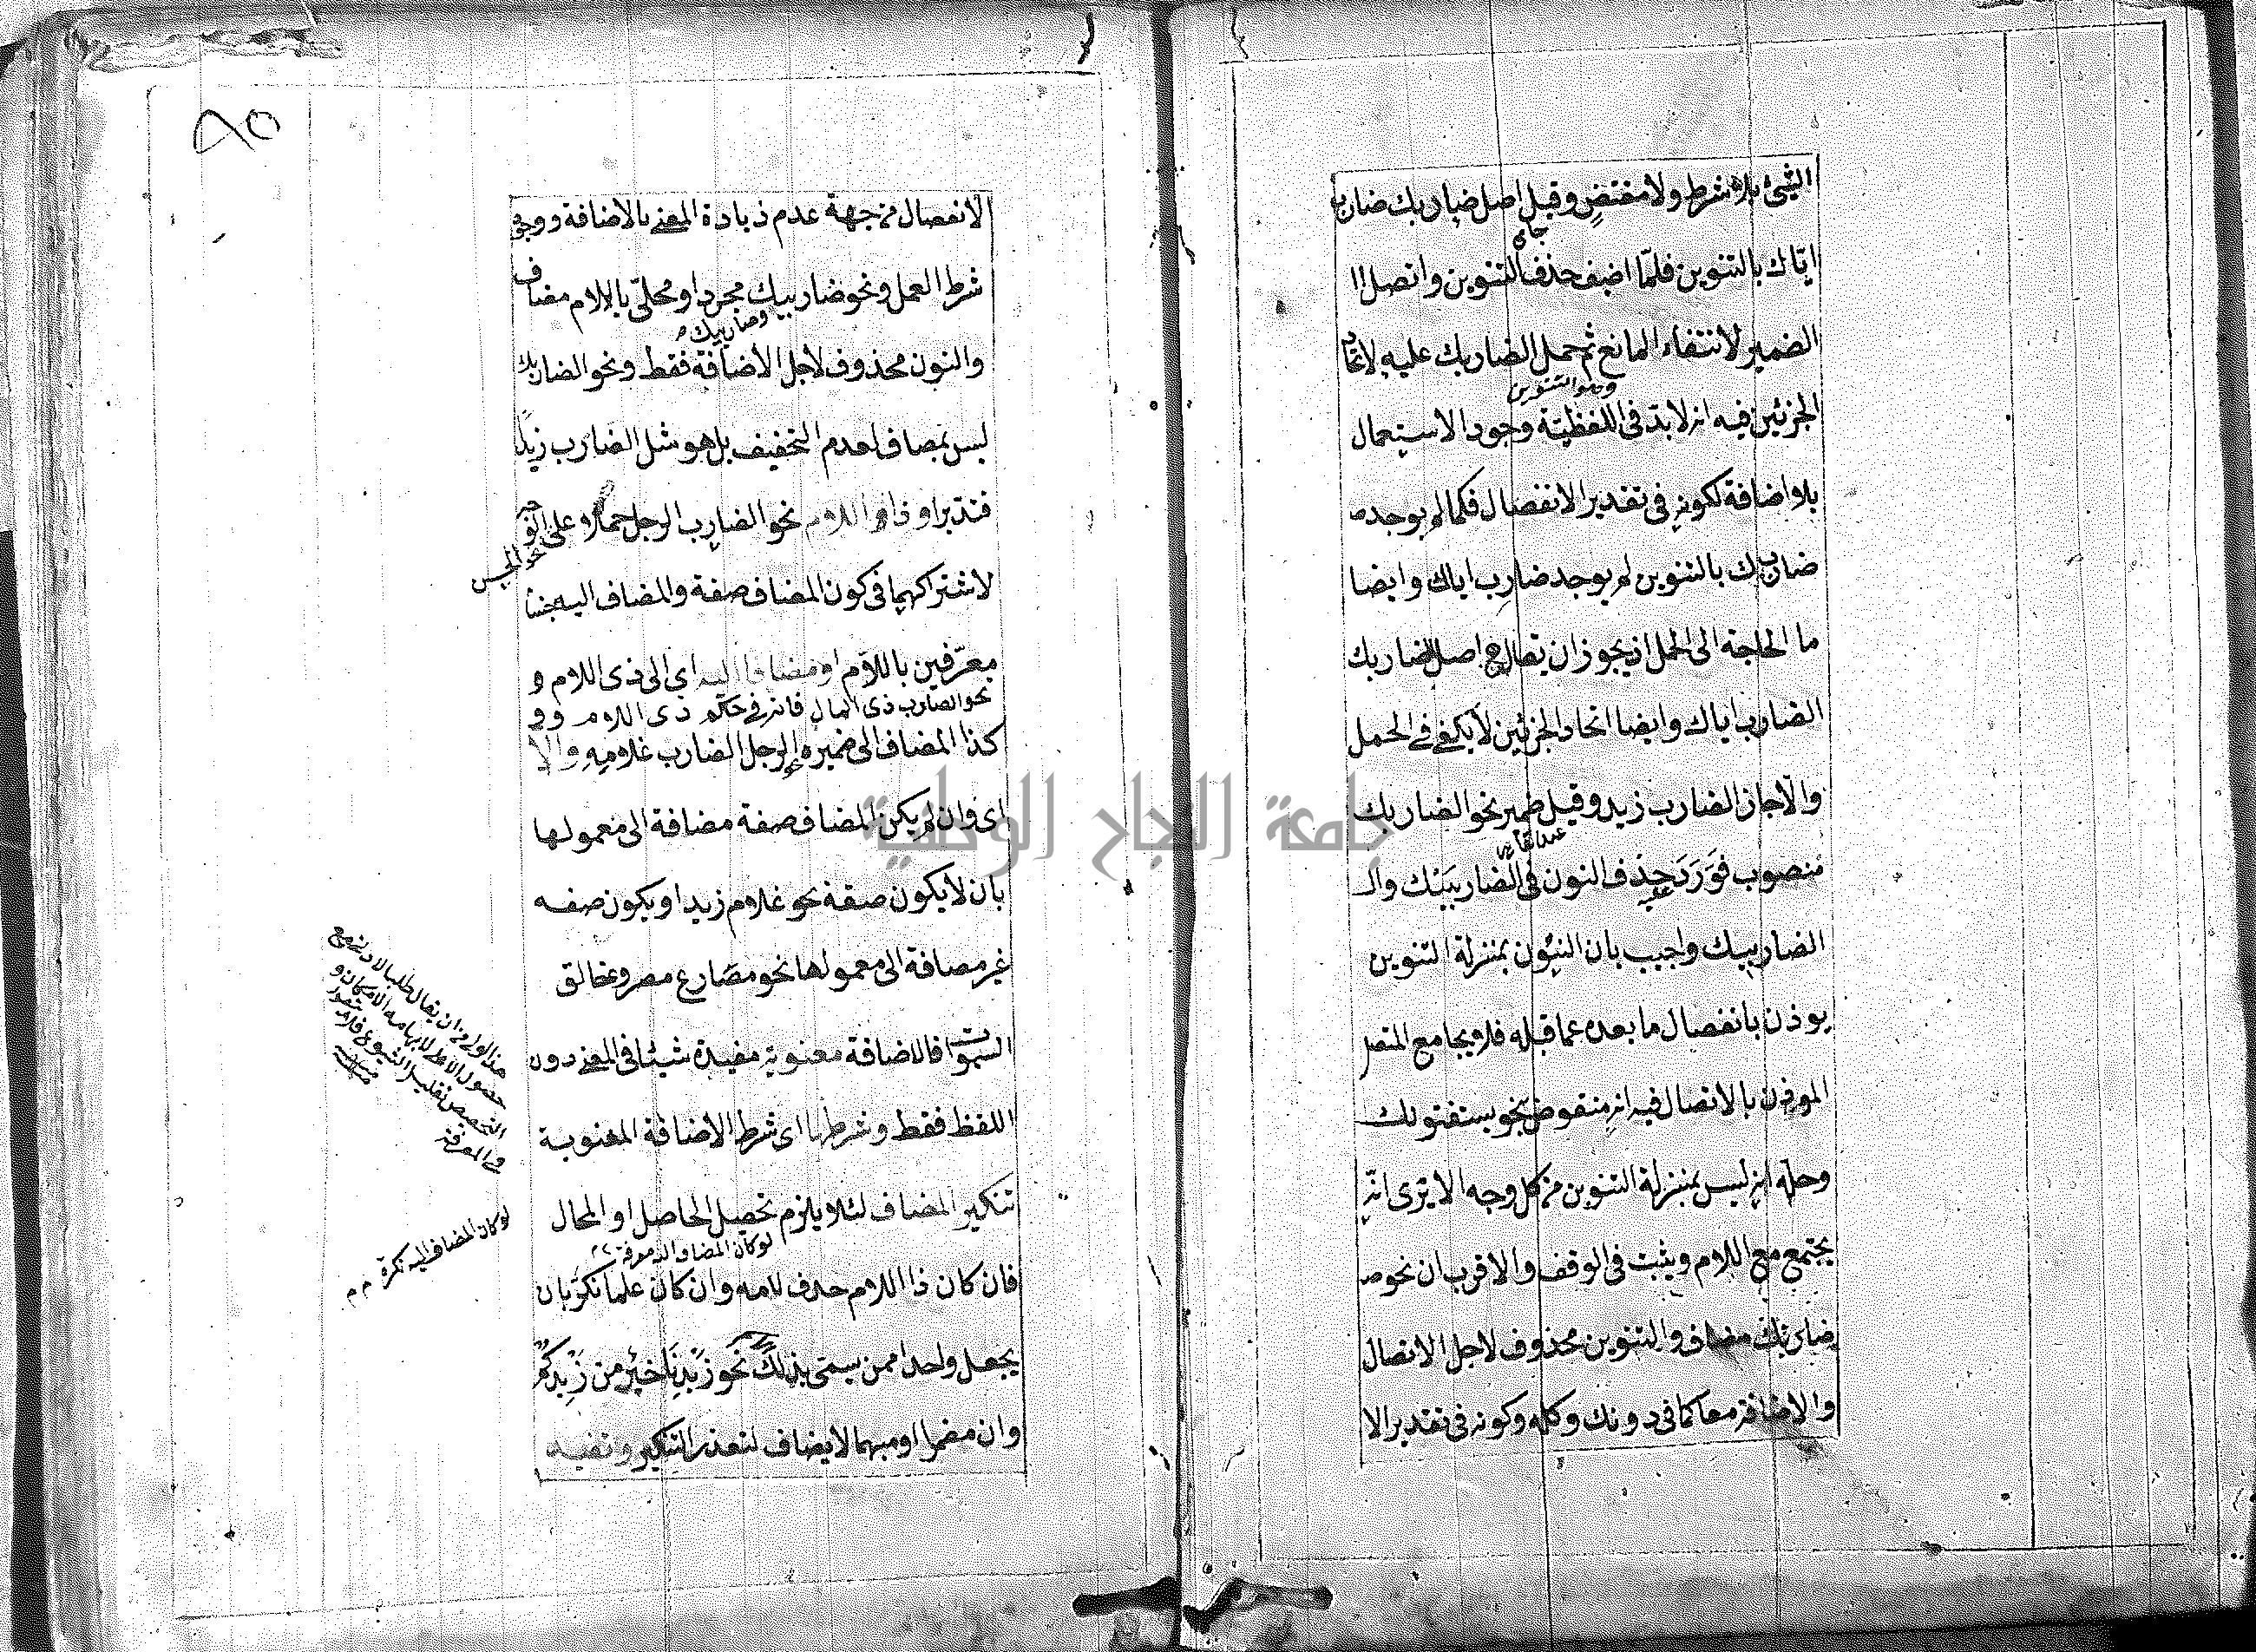 الشيئ بلا شرط ولا مقتض وقيل اصل ضاربك ضارب
اياك بالتنوين فلما اضيف حذف التنوين واتصل
الضمير لانتفاء المانع ثم حمل الضاربك عليه لاتحاد
الجزئين فيه انه لا بد في اللفظية وجود الاستعمال
بلا اضافة لكونه في تقدير الانفصال فكما لم يوجد
ضاربك بالتنوين لم يوجد ضارب اياك وايضا
ما الحاجة الى الحمل اذ يجوز ان يقال اصل الضاربك
الضارب اياك وايضا اتحاد الجزئين لا يكفي في الحمل
والا جاز الضارب زيد وقيل ضمير نحو الضاربك
منصوب فورد حذف النون في الضاربينك
الضاربيك واجيب بان النون بمنزلة التنوين
يوذن بانفصال ما بعده عما قبله فلا يجامع المتصل
الموذن بالاتصال فيه انه منقوض بنحو يستفتونك
وحله انه ليس بمنزلة التنوين من كل وجه الا يرى انه
يجتمع مع اللام ويثبت في الوقف والاقرب ان نحو
ضاربك مضاف والتنوين محذوف لاجل الاتصال
والاضافة معا كما في دونك وكله وكونه في تقدير الا
٨٥
لانفصال من جهة عدم زيادة المعنى بالاضافة ووجي
شرط العمل ونحو ضاربيك مجردا ومحلى باللام مضاف
وضاربيك
والنون محذوف لاجل الاضافة فقط ونحو الضاربك
ليس بمضاف لعدم التخفيف بل هو مثل الضارب زيدا
فتدبر او ذا اللام نحو الضارب الرجل حملا على
لاشتراكهما في كون المضاف صفة والمضاف اليه جنسا
معرفين باللام او مضافا اليه اي الى ذى اللام و
نحو الضارب ذى المال فانه في حكم ذى اللام
كذا المضاف الى ضميره الرجل الضارب غلامه والا
اى وان لم يكن المضاف صفة مضافة الى معمولها
بان لا يكون صفة نحو غلام زيد او يكون صفه
غير مضافة الى معمولها نحو مضارع مصر وخالق
السموات فالاضافة معنوية مفيدة شيئا في المعنى دون
اللفظ فقط وشرطها اى شرط الاضافة المعنوية
تنكير المضاف لئلا يلزم تحصيل الحاصل او المحال
لو كان المضاف اليه معرفة
فان كان ذا اللام حذف لامه وان كان علما نكر بان
يجعل واحدا ممن يسمى بذلك نحو زيدنا خير من زيدكم
وان مضمرا او مبهما لا يضاف لتعذر التنكير وتفيد
هذا اولى من ان يقال طلب الادنى مع
حصول الاعلى
التخصيص تقليل الشيوع
في المعرفة
لو كان المضاف اليه نكرة م م
جامعة النجاح الوطنية